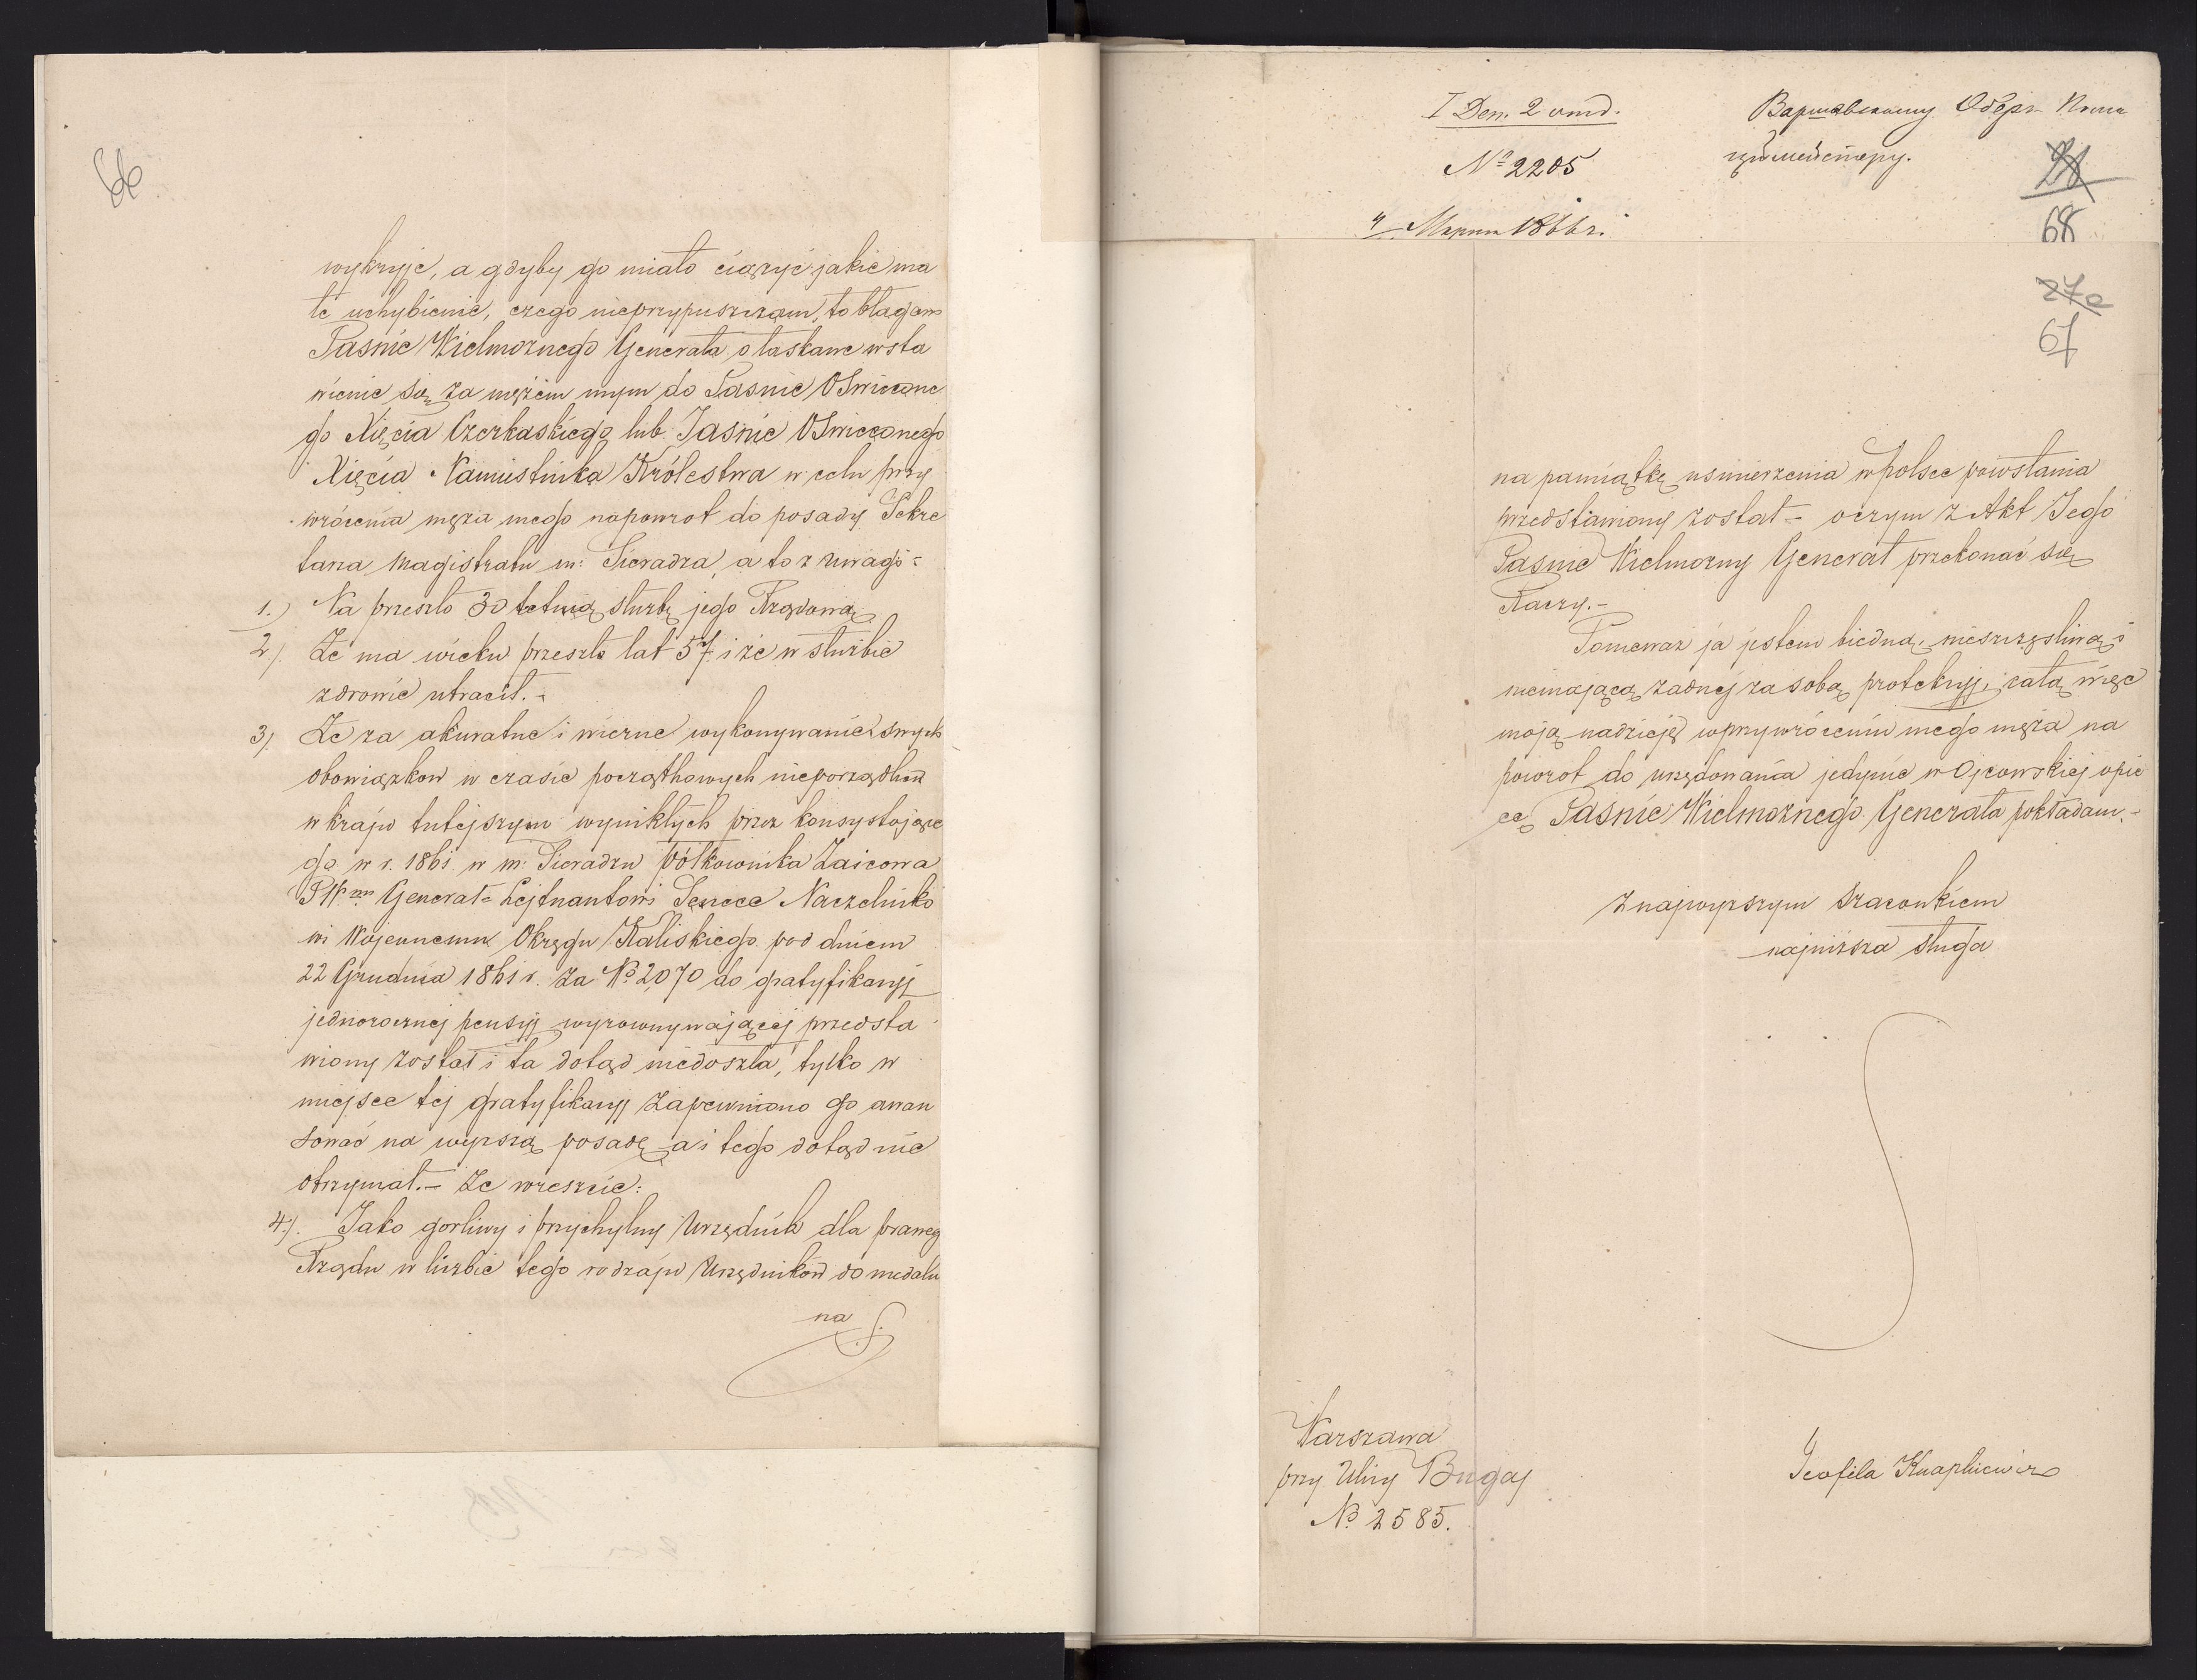 66
wykryje, a gdyby go miało ciążyć jakie ma
łe uchybienie, czego nieprzypuszczam, to błagam
Jaśnie Wielmożnego Generała o łaskawe wsta
wienie się za mężem mym do Jaśnie Oświecone
go Xięcia Czerkaskiego lub Jaśnie Oświeconego
Xięcia Namiestnika Królestwa w celu przy
wrócenia męża mego napowrot do posady Sekre
tarza Magistratu m: Sieradza, a to z uwagi =
1.) Na przeszło 30 letnią służbę jego Rządową
2.) Że ma wieku przeszło lat 57. i że w służbie
zdrowie utracił. =
3). Że za akuratne i wierne wykonywanie swych
obowiązkow w czasie początkowych nieporządków
w kraju tutejszym wynikłych przez konsystojące
go w r. 1861. w m: Sieradzu Półkownika Zaicowa
JW.mu Generał = Lejtnantowi Naczelniko
wi Wojennemu Okręgu Kaliskiego pod dniem
22 Grudnia 1861 r. za No 2,070 do gratyfikacyj
jednorocznej pensyj wyrownywającej przedsta
wiony został i ta dotąd niedoszła, tylko w
miejsce tej gratyfikacyj zapewniono go awan
sować na wyższą posadę a i tego dotąd nie
otrzymał. — Że wreszcie:
4). Jako gorliwy i przychylny Urzędnik dla prawego
Rządu w liczbie tego rodzaju Urzędników do medalu
na
I Деп. 2 отд.
No 2205
4 Марта 1866 г.
Варшавскому Оберъ Поли
цiймейстеру.
28
68
27a
67
na pamiątkę uśmierzenia w Polsce powstania
przedstawiony został = oczym z Akt Jego
Jaśnie Wielmożny Generał przekonać się
Raczy. —
Ponieważ ja jestem biedną, nieszczęśliwą i
niemającą żadnej za sobą protekcyj, całą więc
moją nadzieję w przywróceniu mego męża na
powrot do urzędowania jedynie w Ojcowskiej opie
ce Jaśnie Wielmożnego Generała pokładam. —
Z najwyższym szacunkiem
najniższa sługa
Warszawa
przy Ulicy Bugaj
No 2585.
Teofila Knapkiewicz